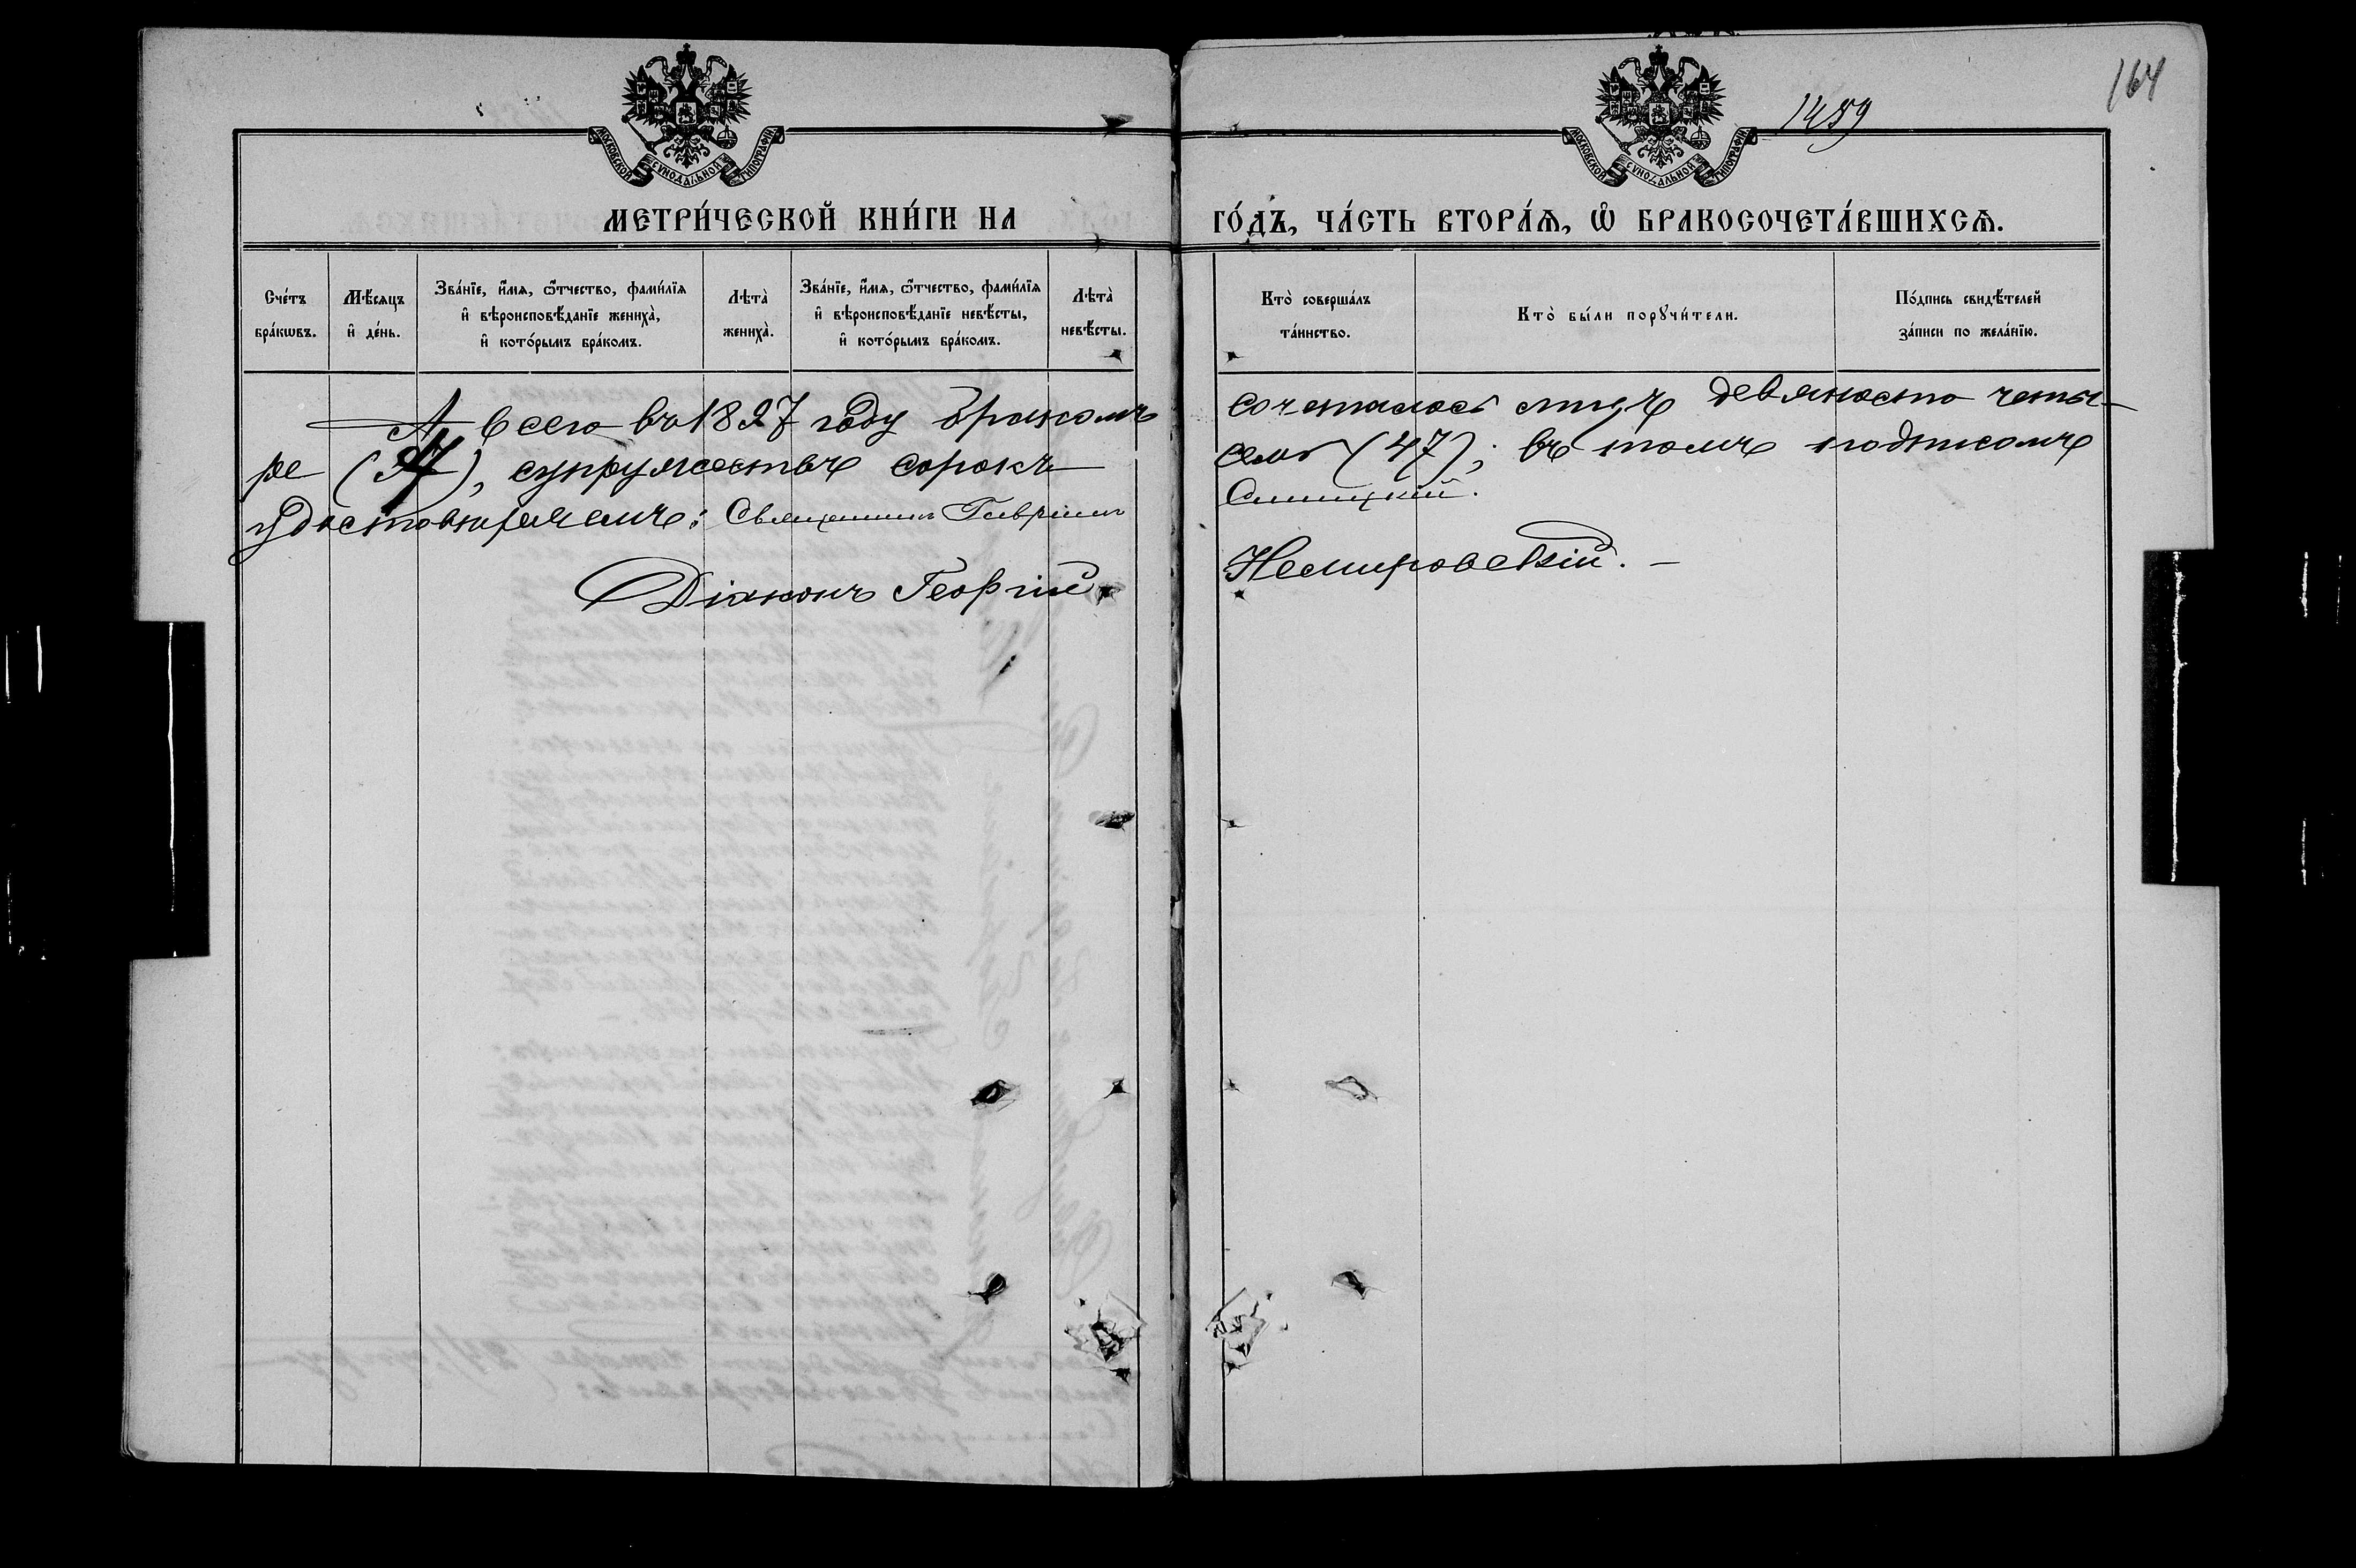 164
1489
МОСКОВСКОЙ СѴНОДАЛЬНОЙ ТИПОГРАФІИ
МОСКОВСКОЙ СѴНОДАЛЬНОЙ ТИПОГРАФІИ
МЕТРИ́ЧЕСКОЙ КНИ́ГИ НА ГО́ДЪ, ЧА́СТЬ ВТОРА́Ѧ, Ѡ҆ БРАКОСОЧЕТА́ВШИХСѦ.
Сче́тъ
бра́кѡвъ.
Мѣ́сяцъ
и҆ де́нь.
Зва́нїе, и҆́мя, ѻ҆́тчество, фами́лїя
и҆ вѣроисповѣ́данїе жениха̀,
и҆ кото́рымъ бра́комъ.
Лѣта̀
жениха̀.
Зва́нїе, и҆́мя, ѻ҆́тчество, фами́лїя
и҆ вѣроисповѣ́данїе невѣ́сты,
и҆ кото́рымъ бра́комъ.
Лѣта̀
невѣ́сты.
Кто̀ соверша́лъ
та́инство.
Кто̀ бы́ли порꙋчи́тели.
По́дпись свидѣ́телей
за́писи по жела́нїю.
А всего въ 1897 году бракомъ сочеталось лицъ девяносто четы-
ре (94), супружествъ сорокъ семь (47); въ томъ подписомъ
удостовѣряемъ: Священникъ Гавріилъ
Діаконъ Георгій Немировскій. —